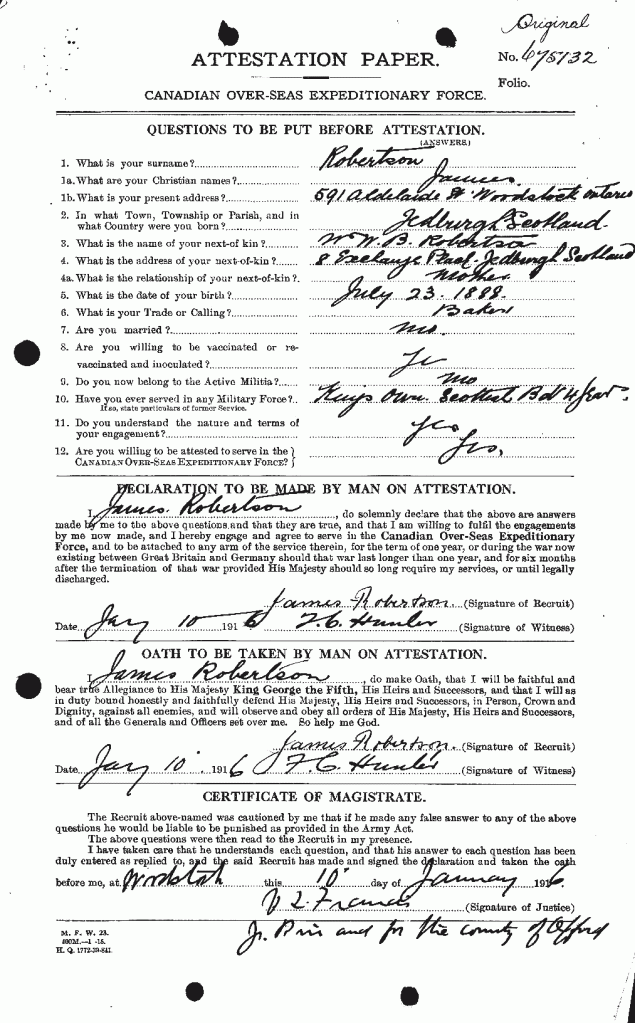 Original
ATTESTATION PAPER.
No. 675132
Folio.
CANADIAN OVER-SEAS EXPEDITIONARY FORCE.
QUESTIONS TO BE PUT BEFORE ATTESTATION.
(ANSWERS)
1. What is your surname? Robertson
1a. What are your Christian names? James
1b. What is your present address? 591 Adelaide St Woodstock Ontario
2. In what Town, Township or Parish, and in
what Country were you born? Jedburgh Scotland.
3. What is the name of your next-of kin? B. Robertson
4. What is the address of your next-of-kin? 8 Exchange Place Jedburgh Scotland
4a. What is the relationship of your next-of-kin? Mother
5. What is the date of your birth? July 23. 1888.
6. What is your Trade or Calling? Baker
7. Are you married? no.
8. Are you willing to be vaccinated or re-
vaccinated and inoculated?
9. Do you now belong to the Active Militia? no
10. Have you ever served in any Military Force? Kings Own. Scottish Bd 4 year.
If so, state particulars of former Service.
11. Do you understand the nature and terms of
your engagement? Yes
12. Are you willing to be attested to serve in the
CANADIAN OVER-SEAS EXPEDITIONARY FORCE? Yes,
DECLARATION TO BE MADE BY MAN ON ATTESTATION.
I, James Robertson, do solemnly declare that the above are answers
made by me to the above questions and that they are true, and that I am willing to fulfil the engagements
by me now made, and I hereby engage and agree to serve in the Canadian Over-Seas Expeditionary
Force, and to be attached to any arm of the service therein, for the term of one year, or during the war now
existing between Great Britain and Germany should that war last longer than one year, and for six months
after the termination of that war provided His Majesty should so long require my services, or until legally
discharged.
James Robertson. (Signature of Recruit)
Date Jany 10 1916 F. C. Hunter (Signature of Witness)
OATH TO BE TAKEN BY MAN ON ATTESTATION.
I, James Robertson, do make Oath, that I will be faithful and
bear true Allegiance to His Majesty King George the Fifth, His Heirs and Successors, and that I will as
in duty bound honestly and faithfully defend His Majesty, His Heirs and Successors, in Person, Crown and
Dignity, against all enemies, and will observe and obey all orders of His Majesty, His Heirs and Successors,
and of all the Generals and Officers set over me. So help me God.
James Robertson. (Signature of Recruit)
Date Jany 10 1916 F. C. Hunter (Signature of Witness)
CERTIFICATE OF MAGISTRATE.
The Recruit above-named was cautioned by me that if he made any false answer to any of the above
questions he would be liable to be punished as provided in the Army Act.
The above questions were then read to the Recruit in my presence.
I have taken care that he understands each question, and that his answer to each question has been
duly entered as replied to, and the said Recruit has made and signed the declaration and taken the oath
before me, at Woodstock this 10 day of January 1916.
(Signature of Justice)
M. F. W. 23.
H. Q. 1772-39-841.
in and for the county of Oxford